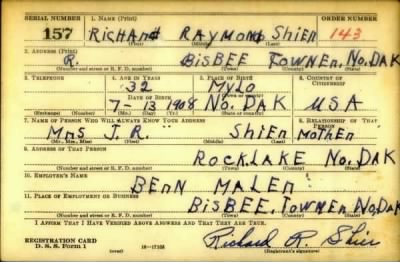 SERIAL NUMBER 1. NAME (Print) ORDER NUMBER
157 RICHARD RAYMOND SHIER 143
(First) (Middle) (Last)
2. ADDRESS (Print)
R. BISBEE TOWNER, NO. DAK
(Number and street or R. F. D. number) (Town) (County) (State)
3. TELEPHONE 4. AGE IN YEARS 5. PLACE OF BIRTH 6. COUNTRY OF CITIZENSHIP
32 MYLO
DATE OF BIRTH
7-13 1908 NO. DAK USA
(Exchange) (Number) (Mo.) (Day) (Yr.) (State or country)
7. NAME OF PERSON WHO WILL ALWAYS KNOW YOUR ADDRESS 8. RELATIONSHIP OF THAT PERSON
MRS J. R. " SHIER MOTHER
(Mr., Mrs., Miss) (First) (Middle) (Last)
9. ADDRESS OF THAT PERSON
ROCKLAKE NO. DAK
(Number and street or R. F. D. number) (Town) (County) (State)
10. EMPLOYER'S NAME
BERN MALEN
11. PLACE OF EMPLOYMENT OR BUSINESS
BISBEE, TOWNER, NO, DAK
(Number and street or R. F. D. number) (Town) (County) (State)
I AFFIRM THAT I HAVE VERIFIED ABOVE ANSWERS AND THAT THEY ARE TRUE.
REGISTRATION CARD
D. S. S. Form 1 16—17105 Richard R. Shier
(Registrant's signature)